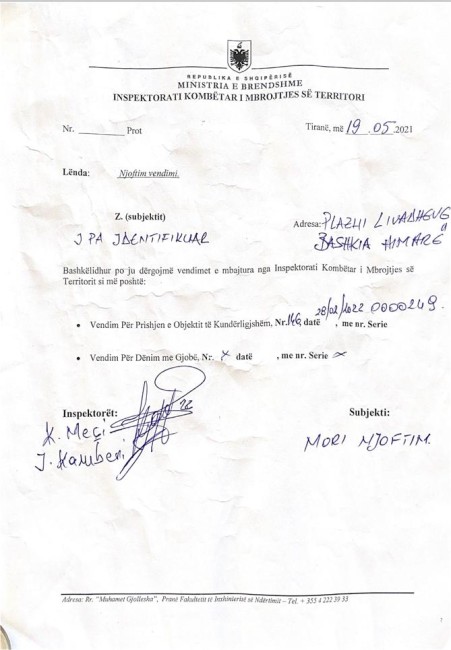 REPUBLIKA E SHQIPËRISË
MINISTRIA E BRENDSHME
INSPEKTORATI KOMBËTAR I MBROJTJES SË TERRITORI
Nr. ________ Prot
Tiranë, më 19.05.2021
Lënda: Njoftim vendimi.
Z. (subjektit)
I PA IDENTIFIKUAR
Adresa: PLAZHI
BASHKIA HIMARË
Bashkëlidhur po ju dërgojmë vendimet e mbajtura nga Inspektorati Kombëtar i Mbrojtjes së
Territorit si më poshtë:
• Vendim Për Prishjen e Objektit të Kundërligjshëm, Nr. 146, datë 28/02/2022, me nr. Serie 0000249.
• Vendim Për Dënim me Gjobë, Nr. X datë , me nr. Serie X
Inspektorët:
K. Meçi
J. Kamberi
Subjekti:
MORI NJOFTIM.
Adresa: Rr. "Muhamet Gjollesha", Pranë Fakultetit të Inxhinierisë së Ndërtimit – Tel. + 355 4 222 39 33